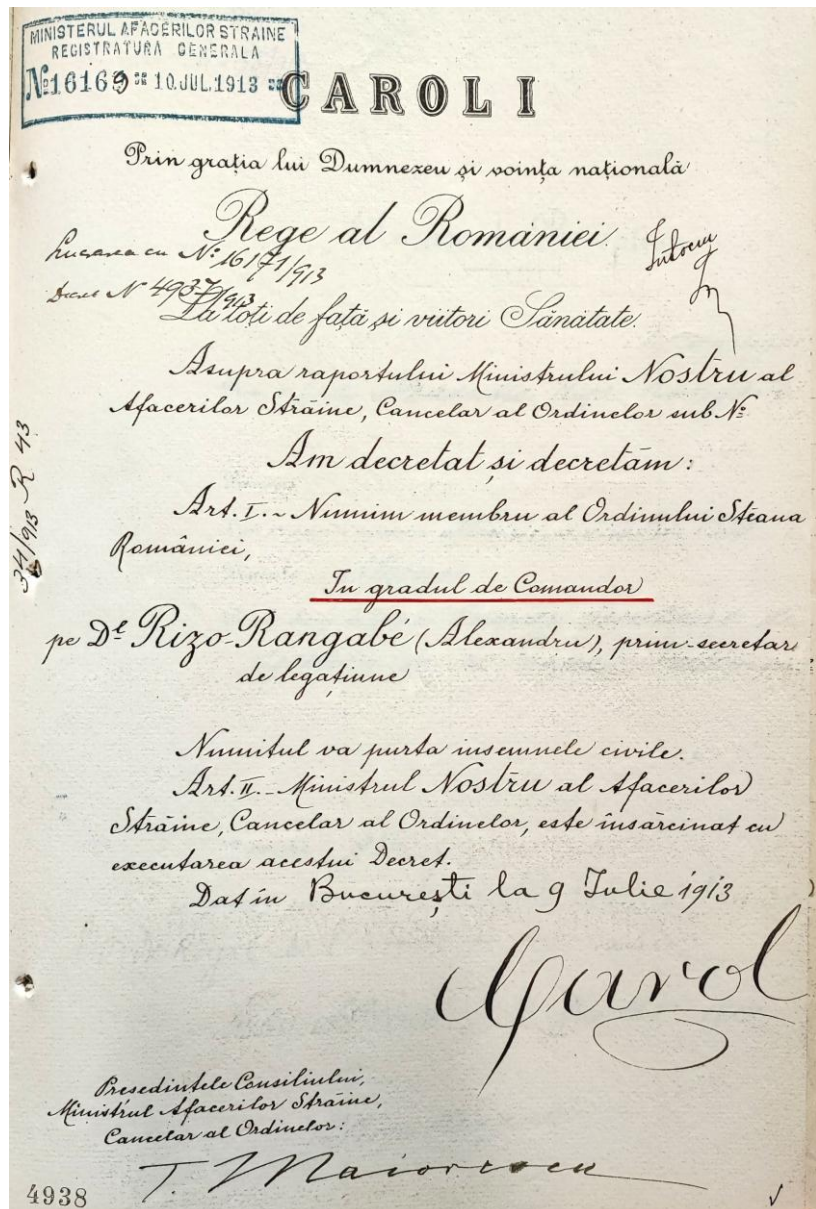 MINISTERUL AFACERILOR STRAINE
REGISTRATURA GENERALA
№16169 10.JUL.1913
CAROL I
Prin grația lui Dumnezeu și voința națională
Rege al României.
Lucrarea cu № 16171/913
Decret № 4937/913
La toți de față și viitori Sănătate.
Asupra raportului Ministrului Nostru al
Afacerilor Străine, Cancelar al Ordinelor sub №
Am decretat și decretăm:
34/913 R 43
Art. I. - Numim membru al Ordinului Steaua
României,
In gradul de Comandor
pe Dl Rizo-Rangabé (Alexandru), prim-secretar
de legațiune
Numitul va purta insemnele civile.
Art. II. - Ministrul Nostru al Afacerilor
Străine, Cancelar al Ordinelor, este însărcinat cu
executarea acestui Decret.
Dat în București la 9 Iulie 1913
Carol
Presedintele Consiliului,
Ministrul Afacerilor Străine,
Cancelar al Ordinelor:
T. Maiorescu
4938